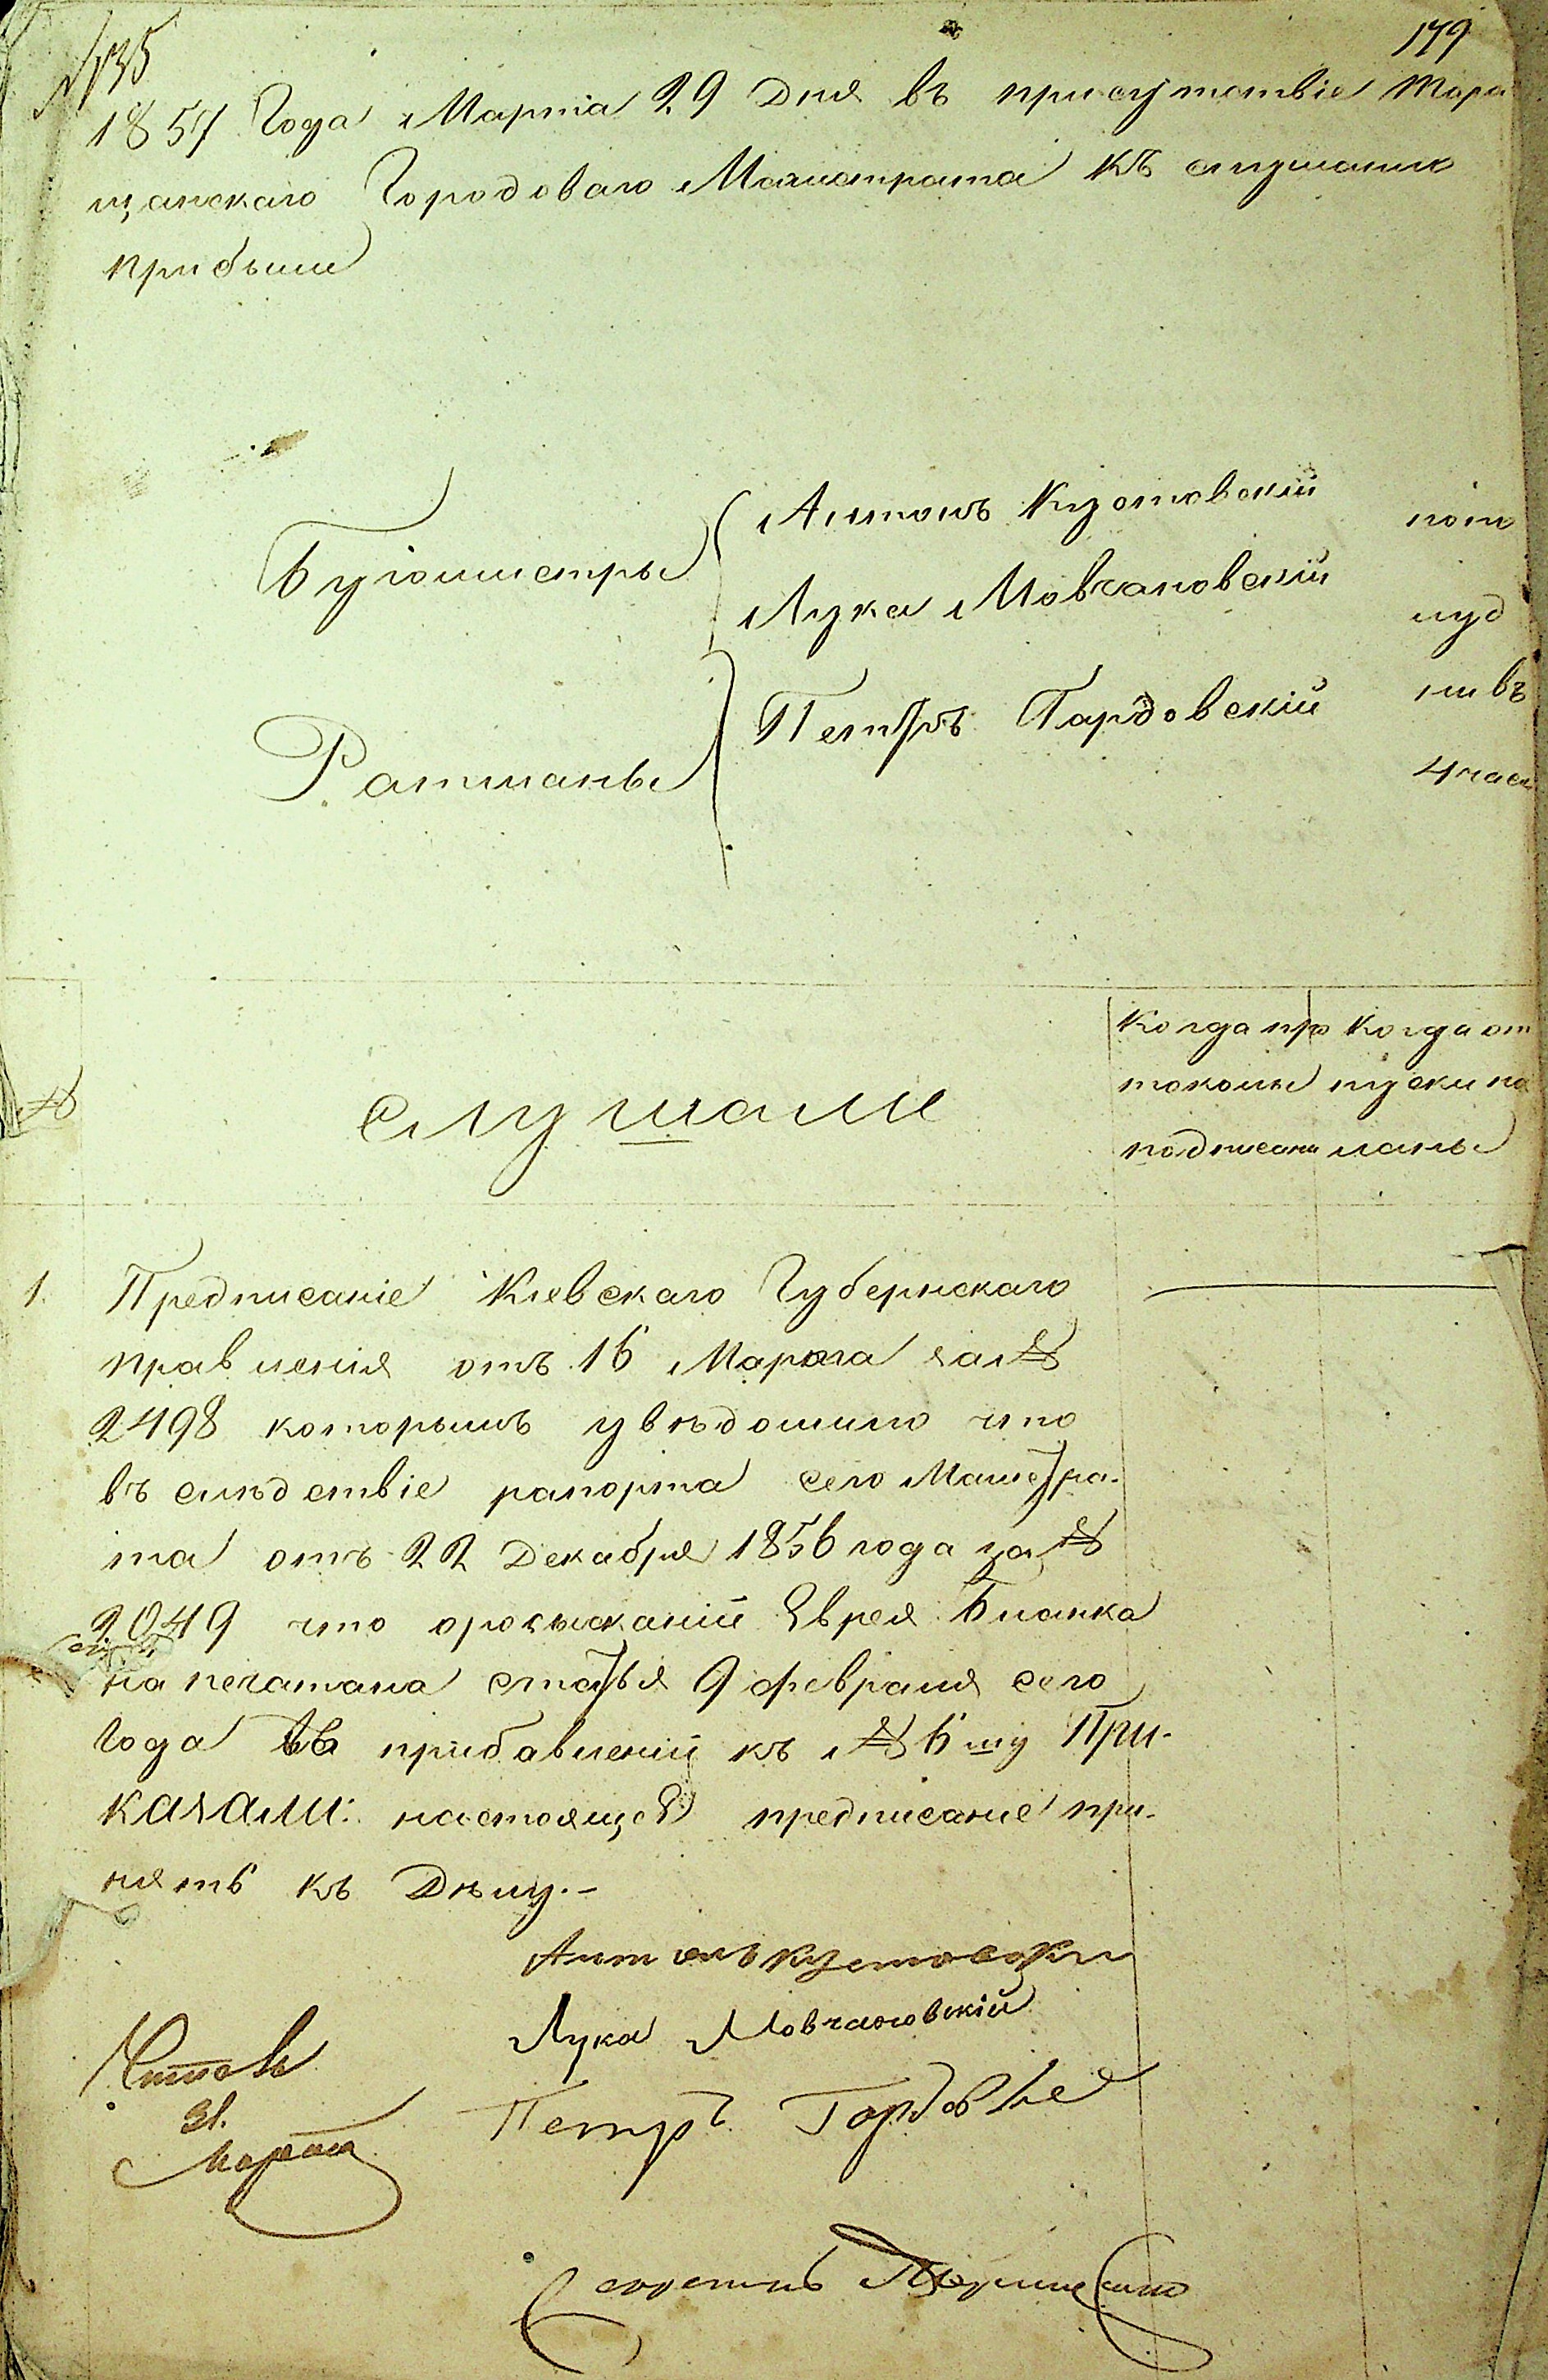 №135
179
1857 Года Марта 29 Дня въ присутствіе Тара
щанскаго Городоваго Магистрата къ слушанию
прибыли
Бургомистры
Антонъ Кустовскій
Лука Мовчановскій
Ратманы
Петръ Гардовскій
попо
луд
ни въ
4 часа
№
слушали
Когда про
токолы
подписаны
Когда от
пуски по
сланы
1. Предписаніе Киевскаго Губернскаго
правления отъ 16 Марта за №
2498 которымъ увѣдомило что
въ слѣдствіе рапорта сего Магистра-
та отъ 22 Декабря 1856 года за №
2049 что о розысканіи Еврея Бланка
на печатана статья 9 февраля сего
Года въ прибавленіи къ № 6му При-
казали: настоящеѣ предписание при-
нять къ Дѣлу.-
Антонъ Кустовски
Лука Мовчановскій
Читалъ
31.
Марта
Петръ Гордовс
Секретарь